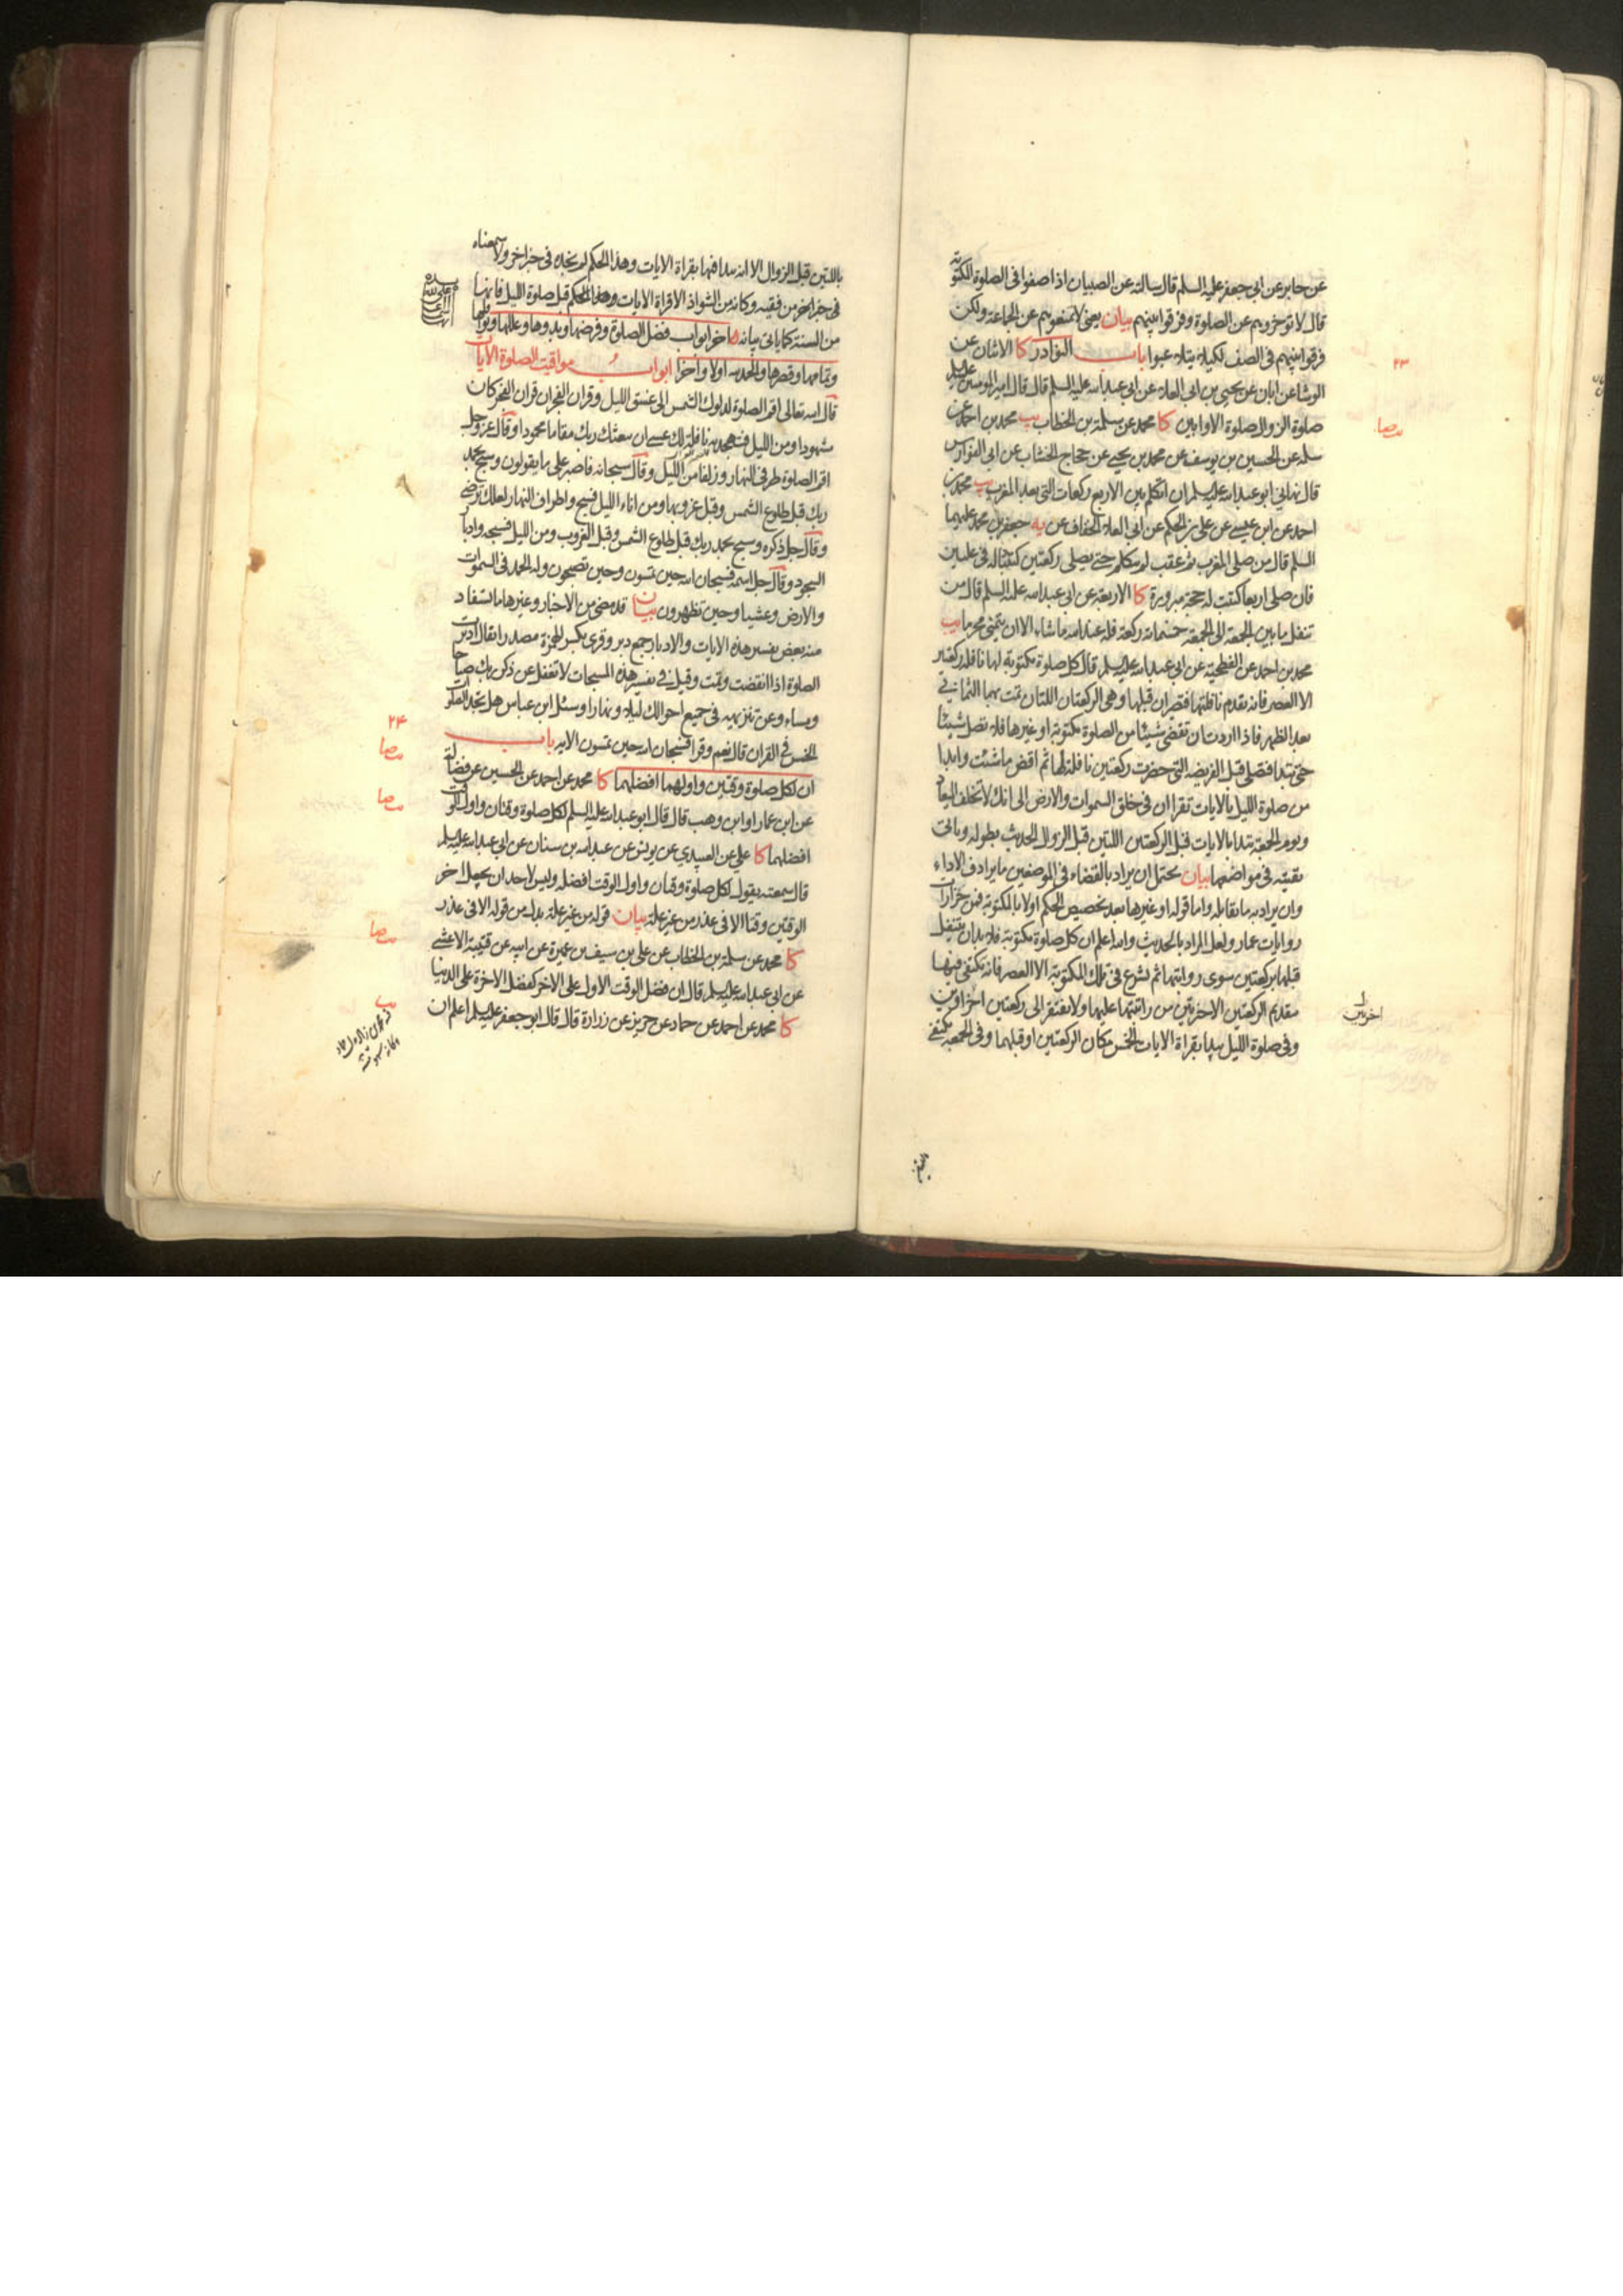 عن جابر عن ابي جعفر عليه السلم قال سالته عن الصبيان اذا صفوا في الصلوة المكتوبة
قال لا توخروهم عن الصلوة وفرقوا بينهم بيان يعني لا تمنعوهم عن الجماعة ولكن
فرقوا بينهم في الصف لكيلا يتلاعبوا باب النوادر كا الاثنان عن
الوشا عن ابان عن يحيى بن ابي العلا عن ابي عبد الله عليه السلم قال قال امير المومنين عليه السلم
صلوة الزوال صلوة الاوابين كا محمد عن سلمة بن الخطاب يب محمد بن احمد عن
سلمه عن الحسين بن يوسف عن محمد بن يحيى عن حجاج الخشاب عن ابي الفوارس
قال نهاني ابو عبد الله عليه السلم ان اتكلم بين الاربع ركعات التي بعد المغرب يب محمد بن
احمد عن ابن عيسى عن علي بن الحكم عن ابي العلا الخفاف عن يه جعفر بن محمد عليهما
السلم قال من صلى المغرب ثم عقب لم يتكلم حتى يصلي ركعتين كتبتا له في عليين
فان صلى اربعا كتبت له حجة مبرورة كا الاربعة عن ابي عبد الله عليه السلم قال من
تنفل ما بين الجمعة الى الجمعة خمسمائة ركعة فله عند الله ما شاء الا ان يتمنى محرما يب
محمد بن احمد عن الفطحية عن ابي عبد الله عليه السلم قال كل صلوة مكتوبة لها نافلة ركعتين
الا العصر فانه يقدم نافلتها فتصيران قبلها وهي الركعتان اللتان تمت بهما الثماني
بعد الظهر فاذا اردت ان تقضي شيئا من الصلوة مكتوبة او غيرها فلا تصل شيئا
حتى تبدا فتصلي قبل الفريضة التي حضرت ركعتين نافلة لها ثم اقض ما شئت وابدا
من صلوة الليل بالايات تقرا ان في خلق السموات والارض الى انك لا تخلف الميعاد
ويوم الجمعة تبدا بالايات قبل الركعتين اللتين قبل الزوال الحديث بطوله وياتي
بقيته في مواضعها بيان يحتمل ان يراد بالقضاء في الموضعين ما يرادف الاداء
وان يراد به ما يقابله واما قوله او غيرها بعد تخصيص الحكم اولا بالمكتوبة فمن
روايات عمار ولعل المراد بالحديث والله اعلم ان كل صلوة مكتوبة فلا بد ان يتنفل
قبلها بركعتين سوى رواتبها ثم يشرع في تلك المكتوبة الا العصر فانه يكتفى فيها
بتقديم الركعتين الاخرتين من راتبتها عليها ولا يفتقر الى ركعتين اخراوين
وفي صلوة الليل يبدا بقراة الايات الخمس مكان الركعتين او قبلهما وفي الجمعة يكتفي
٢٣
صا
اخريين
باللتين قبل الزوال الا انه يبدا فيها بقراة الايات وهذا الحكم لم نجده في خبر اخر ولا سمعناه
في خبر اخر من فقيه وكانه من الشواذ الا قراة الايات وهذا الحكم قبل صلوة الليل فانها
من السنة كما ياتي بيانه اخر ابواب فضل الصلوة وفرضها وبدوها وعللها ونوافلها
وتمامها وقصرها والحمد لله اولا واخرا ابواب مواقيت الصلوة الايات
قال الله تعالى اقم الصلوة لدلوك الشمس الى غسق الليل وقران الفجر ان قران الفجر كان
مشهودا ومن الليل فتهجد به نافلة لك عسى ان يبعثك ربك مقاما محمودا وقال عز وجل
اقم الصلوة طرفي النهار وزلفا من الليل وقال سبحانه فاصبر على ما يقولون وسبح بحمد
ربك قبل طلوع الشمس وقبل غروبها ومن اناء الليل فسبح واطراف النهار لعلك ترضى
وقال جل ذكره وسبح بحمد ربك قبل طلوع الشمس وقبل الغروب ومن الليل فسبحه وادبار
السجود وقال جل اسمه فسبحان الله حين تمسون وحين تصبحون وله الحمد في السموات
والارض وعشيا وحين تظهرون بيان قد مضى من الاخبار وغيرها ما استفاد
منه بعض تفسير هذه الايات والادبار جمع دبر وقرئ بكسر الهمزة مصدرا يقال ادبرت
الصلوة اذا انقضت وتمت وقيل في تفسير هذه المسبحات لا تغفل عن ذكر ربك صباحا
ومساء وعن تنزيهه في جميع احوالك ليلا ونهارا وسئل ابن عباس هل تجد الصلوات
الخمس في القران قال نعم وقرا فسبحان الله حين تمسون الاية باب
ان لكل صلوة وقتين واولهما افضلهما كا محمد عن احمد عن الحسين عن فضالة
عن ابن عمار او ابن وهب قال قال ابو عبد الله عليه السلم لكل صلوة وقتان واول الوقت
افضلهما كا علي عن العبيدي عن يونس عن عبد الله بن سنان عن ابي عبد الله عليه السلم
قال سمعته يقول لكل صلوة وقتان واول الوقت افضله وليس لاحد ان يجعل اخر
الوقتين وقتا الا في عذر من غير علة بيان قوله من غير علة بدل من قوله الا في عذر
كا محمد عن سلمة بن الخطاب عن علي بن سيف بن عميرة عن ابيه عن قتيبة الاعشى
عن ابي عبد الله عليه السلم قال ان فضل الوقت الاول على الاخر كفضل الاخرة على الدنيا
كا محمد عن احمد عن حماد عن حريز عن زرارة قال قال ابو جعفر عليه السلم اعلم ان
٢٤
صا
صا
صا